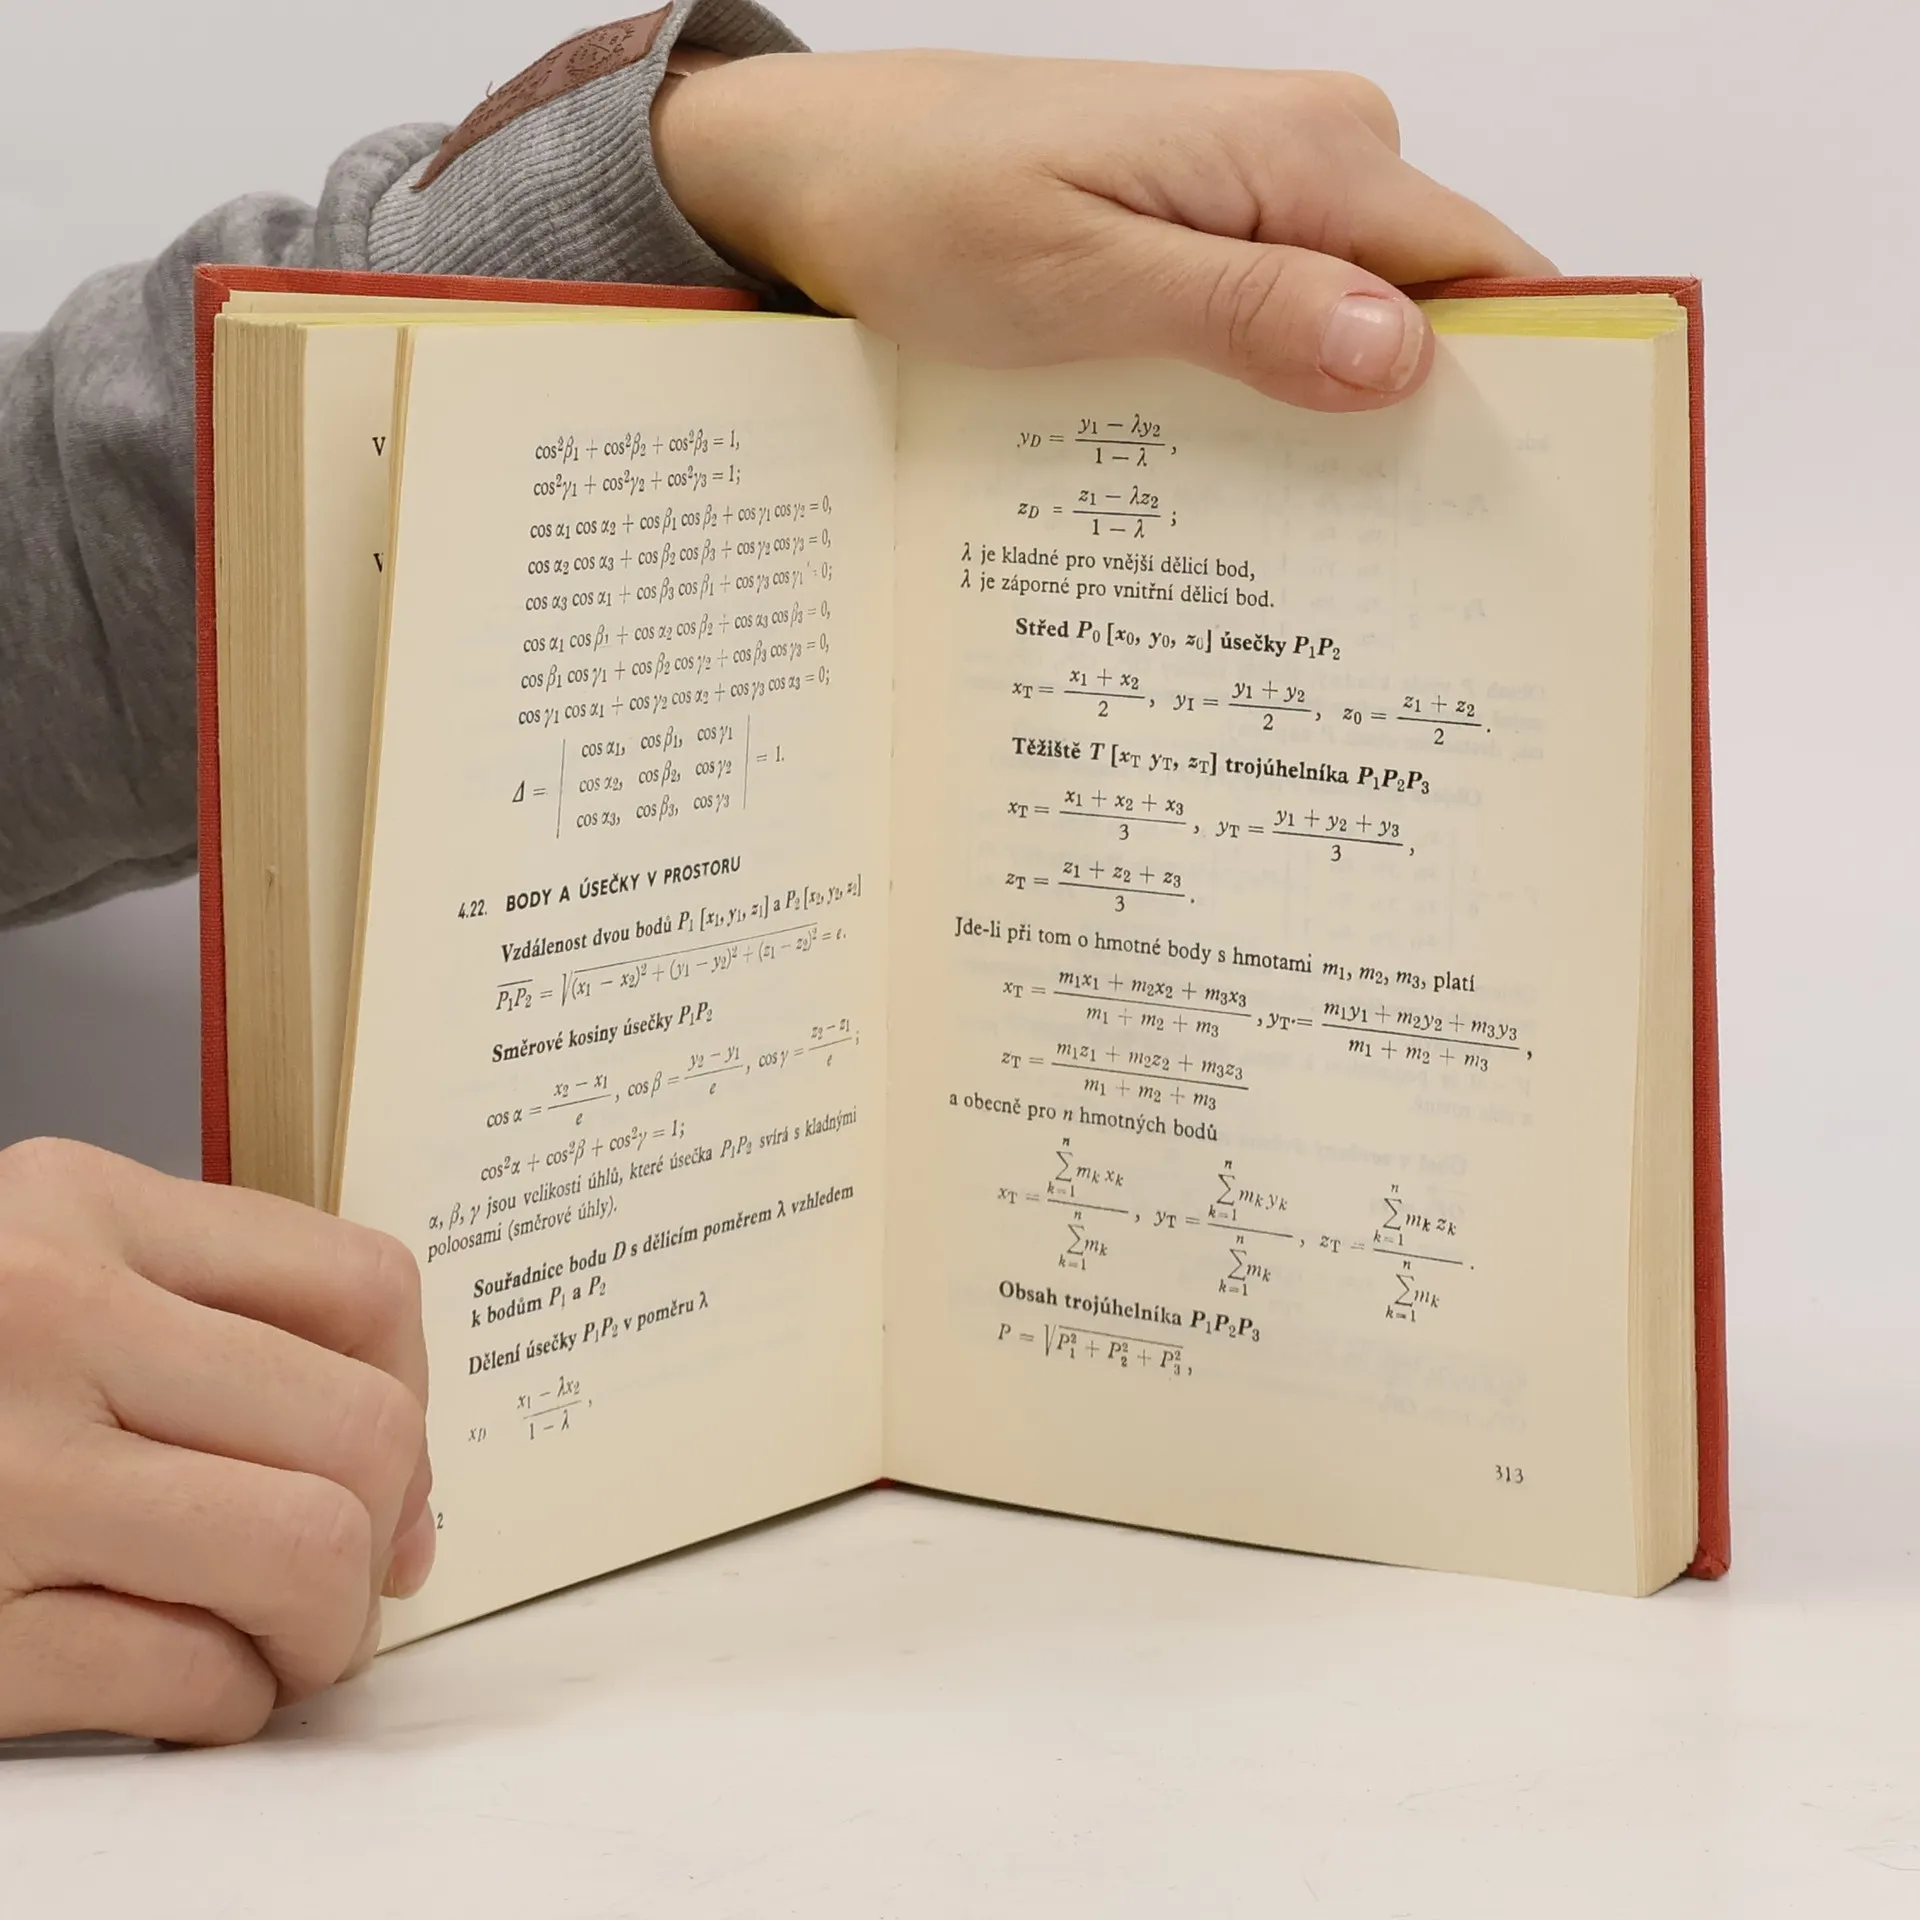 V
V
cos²β₁ + cos²β₂ + cos²β₃ = 1,
cos²γ₁ + cos²γ₂ + cos²γ₃ = 1;
cos α₁ cos α₂ + cos β₁ cos β₂ + cos γ₁ cos γ₂ = 0,
cos α₂ cos α₃ + cos β₂ cos β₃ + cos γ₂ cos γ₃ = 0,
cos α₃ cos α₁ + cos β₃ cos β₁ + cos γ₃ cos γ₁ = 0;
cos α₁ cos β₁ + cos α₂ cos β₂ + cos α₃ cos β₃ = 0,
cos β₁ cos γ₁ + cos β₂ cos γ₂ + cos β₃ cos γ₃ = 0,
cos γ₁ cos α₁ + cos γ₂ cos α₂ + cos γ₃ cos α₃ = 0;
cos α₁, cos β₁, cos γ₁
Δ = | cos α₂, cos β₂, cos γ₂ | = 1.
cos α₃, cos β₃, cos γ₃
4.22. BODY A ÚSEČKY V PROSTORU
Vzdálenost dvou bodů P₁ [x₁, y₁, z₁] a P₂ [x₂, y₂, z₂]
P₁P₂ = √(x₁ − x₂)² + (y₁ − y₂)² + (z₁ − z₂)² = e.
Směrové kosiny úsečky P₁P₂
cos α = (x₂ − x₁)/e, cos β = (y₂ − y₁)/e, cos γ = (z₂ − z₁)/e;
cos²α + cos²β + cos²γ = 1;
α, β, γ jsou velikosti úhlů, které úsečka P₁P₂ svírá s kladnými
poloosami (směrové úhly).
Souřadnice bodu D s dělicím poměrem λ vzhledem
k bodům P₁ a P₂
Dělení úsečky P₁P₂ v poměru λ
x_D (x₁ − λx₂)/(1 − λ),
2
y_D = (y₁ − λy₂)/(1 − λ),
z_D = (z₁ − λz₂)/(1 − λ);
λ je kladné pro vnější dělicí bod,
λ je záporné pro vnitřní dělicí bod.
Střed P₀ [x₀, y₀, z₀] úsečky P₁P₂
x_T = (x₁ + x₂)/2, y_I = (y₁ + y₂)/2, z₀ = (z₁ + z₂)/2.
Těžiště T [x_T y_T, z_T] trojúhelníka P₁P₂P₃
x_T = (x₁ + x₂ + x₃)/3, y_T = (y₁ + y₂ + y₃)/3,
z_T = (z₁ + z₂ + z₃)/3.
Jde-li při tom o hmotné body s hmotami m₁, m₂, m₃, platí
x_T = (m₁x₁ + m₂x₂ + m₃x₃)/(m₁ + m₂ + m₃), y_T = (m₁y₁ + m₂y₂ + m₃y₃)/(m₁ + m₂ + m₃),
z_T = (m₁z₁ + m₂z₂ + m₃z₃)/(m₁ + m₂ + m₃)
a obecně pro n hmotných bodů
x_T = (∑ₖ₌₁ⁿ mₖ xₖ)/(∑ₖ₌₁ⁿ mₖ), y_T = (∑ₖ₌₁ⁿ mₖ yₖ)/(∑ₖ₌₁ⁿ mₖ), z_T = (∑ₖ₌₁ⁿ mₖ zₖ)/(∑ₖ₌₁ⁿ mₖ).
Obsah trojúhelníka P₁P₂P₃
P = √P₁² + P₂² + P₃²,
313